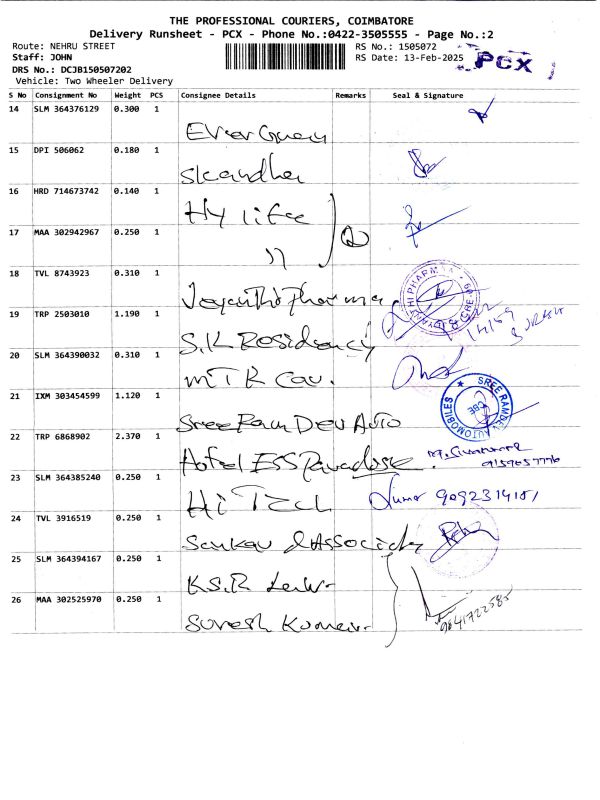 THE PROFESSIONAL COURIERS, COIMBATORE
Delivery Runsheet - PCX - Phone No.:0422-3505555 - Page No.:2
Route: NEHRU STREET
RS No.: 1505072
Staff: JOHN
RS Date: 13-Feb-2025
PCX
DRS No.: DCJB150507202
Vehicle: Two Wheeler Delivery
S No Consignment No Weight PCS Consignee Details Remarks Seal & Signature
14 SLM 364376129 0.300 1
Ever Green
15 DPI 506062 0.180 1
Skandha
16 HRD 714673742 0.140 1
Hy life
17 MAA 302942967 0.250 1
11
2
18 TVL 8743923 0.310 1
Jeyanthi Pharma
19 TRP 2503010 1.190 1
S.K Residency
20 SLM 364390032 0.310 1
MTR Cou.
21 IXM 303454599 1.120 1
Sree Ram Dev Auto
SREE RAMDEV AUTOMOBILES
CBE
22 TRP 6868902 2.370 1
Hotel ESS Paradise.
23 SLM 364385240 0.250 1
Hi Tech
9092314181
24 TVL 3916519 0.250 1
Sankav & Associate
25 SLM 364394167 0.250 1
K.S.R
26 MAA 302525970 0.250 1
Suresh Kumar.
9841722585